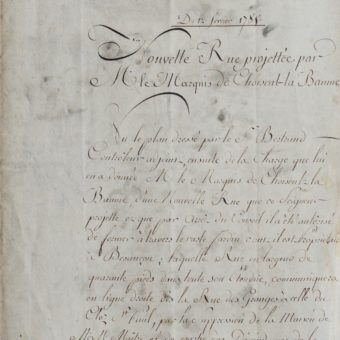 Du 12 fevrier 1785.
Nouvelle Rue projettée par
Mr. le Marquis de Choiseul-la Baume
Vu le plan dressé par le Sr. Bertrand
Contrôleur ajoint, ensuite de la Charge que lui
en a donnée Mr. le Marquis de Choiseul-la
Baume, d'une Nouvelle Rue que ce Seigneur
projette et que par du Conseil il a été autorisé
de former à travers le vaste Jardin dont il est propriétaire
à Besançon; laquelle Rue en largeur de
quarante pieds dans toute son Etendüe, communiquera
en ligne droite de la Rue des Granges à celle du
Clos St. Paul, par la supression de la Maison de